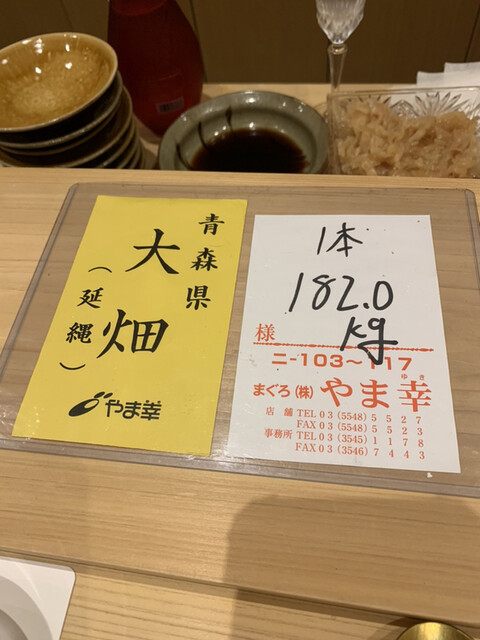 青森県
大畑
(延縄)
やま幸
1本
182.0
kg
様
ニ-103〜117
ゆき
まぐろ(株)やま幸
店舗 TEL 03 (5548) 5527
FAX 03 (5548) 5523
事務所 TEL 03 (3545) 1178
FAX 03 (3546) 7443